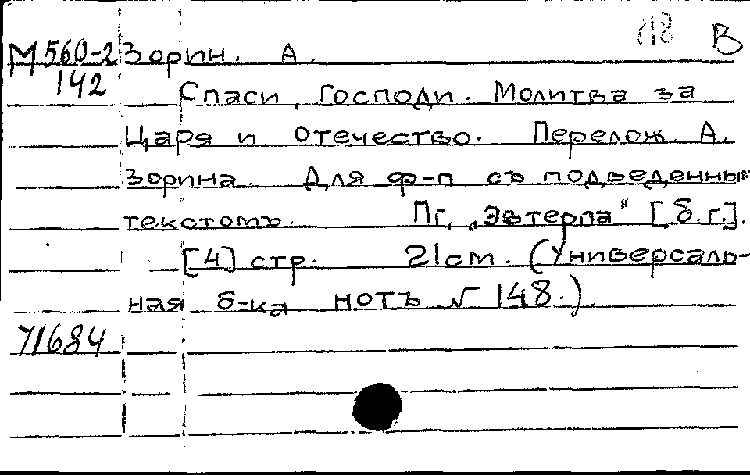 118 В
М 560-2 Зорин. А.
142 Спаси, Господи. Молитва за
Царя и отечество. Перелож. А.
Зорина. Для ф-п съ подведенным
текстомъ. Пг, „Эвтерпа" [б.г.].
[4] стр. 21см. (Универсаль-
ная б-ка нотъ № 148.)
71684